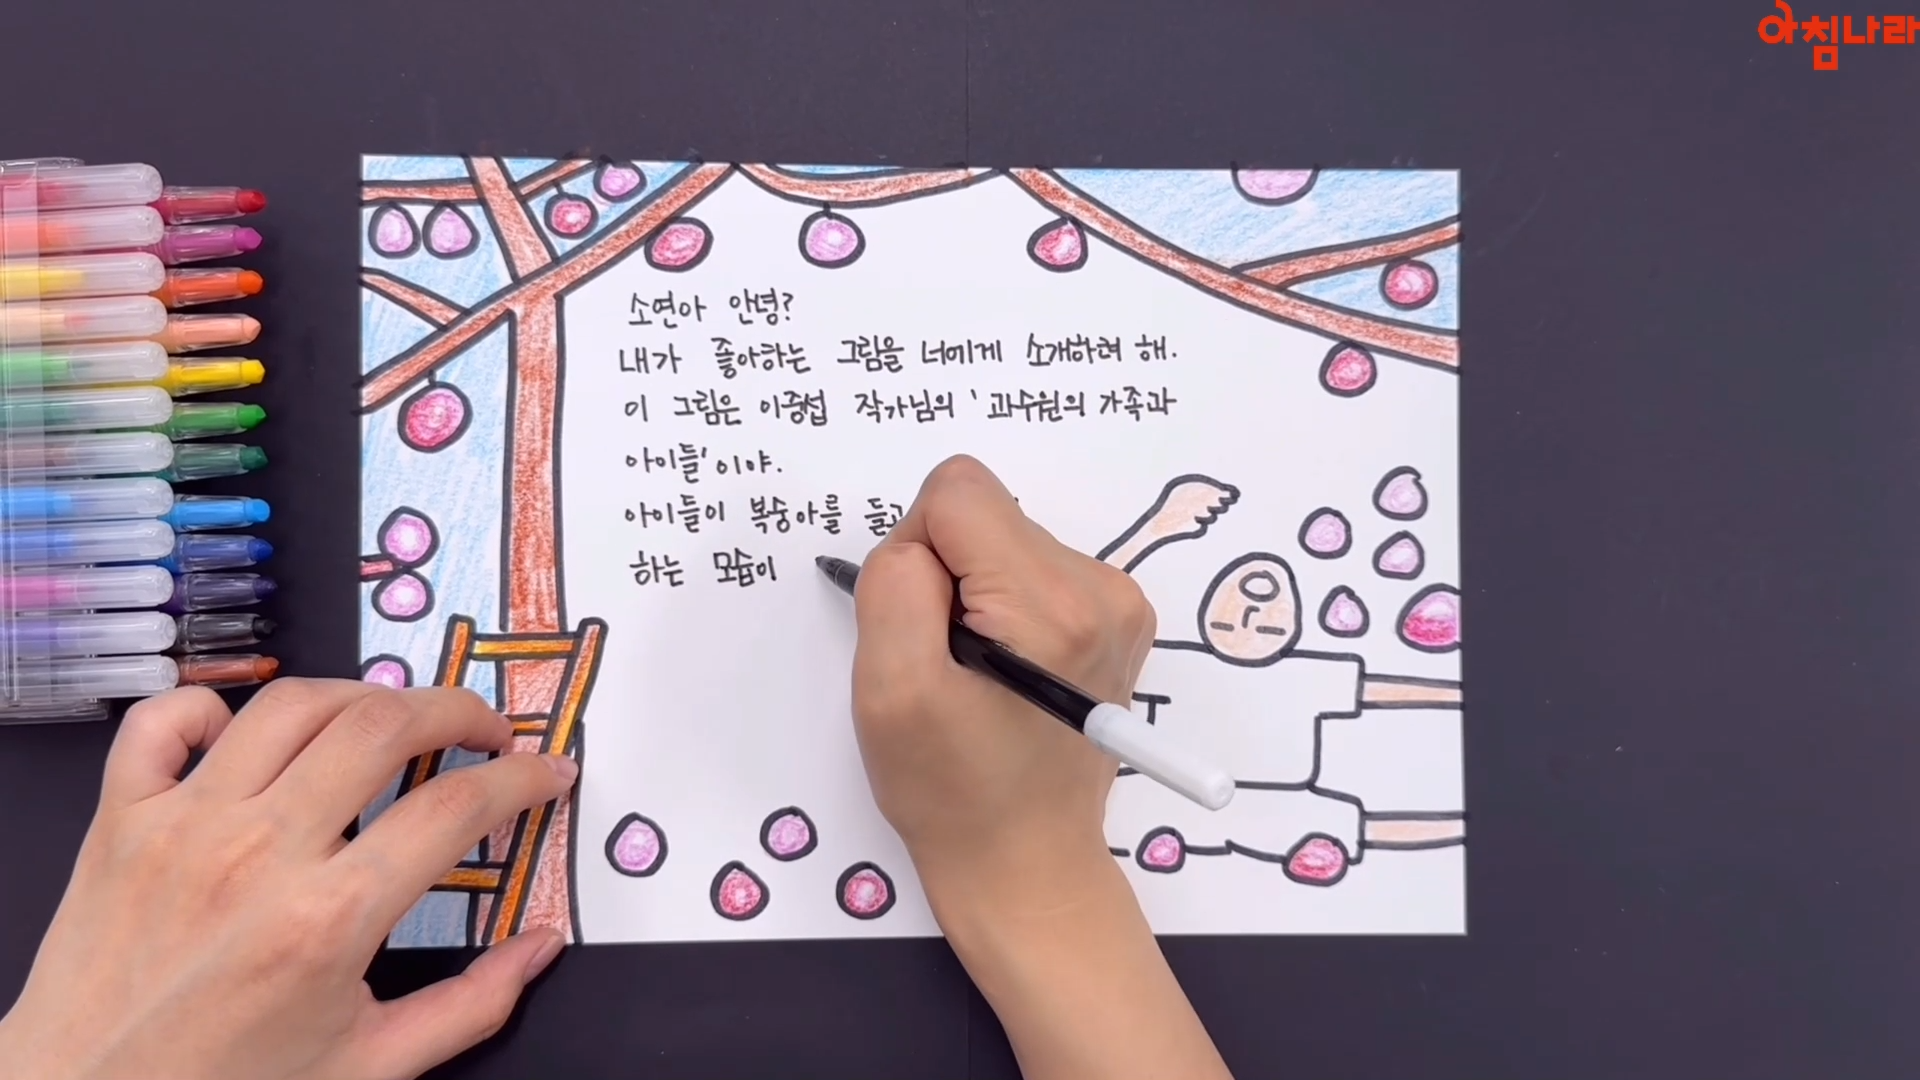 아침나라
소연아 안녕?
내가 좋아하는 그림을 너에게 소개하려 해.
이 그림은 이중섭 작가님의 '과수원의 가족과
아이들'이야.
아이들이 복숭아를 들고
하는 모습이